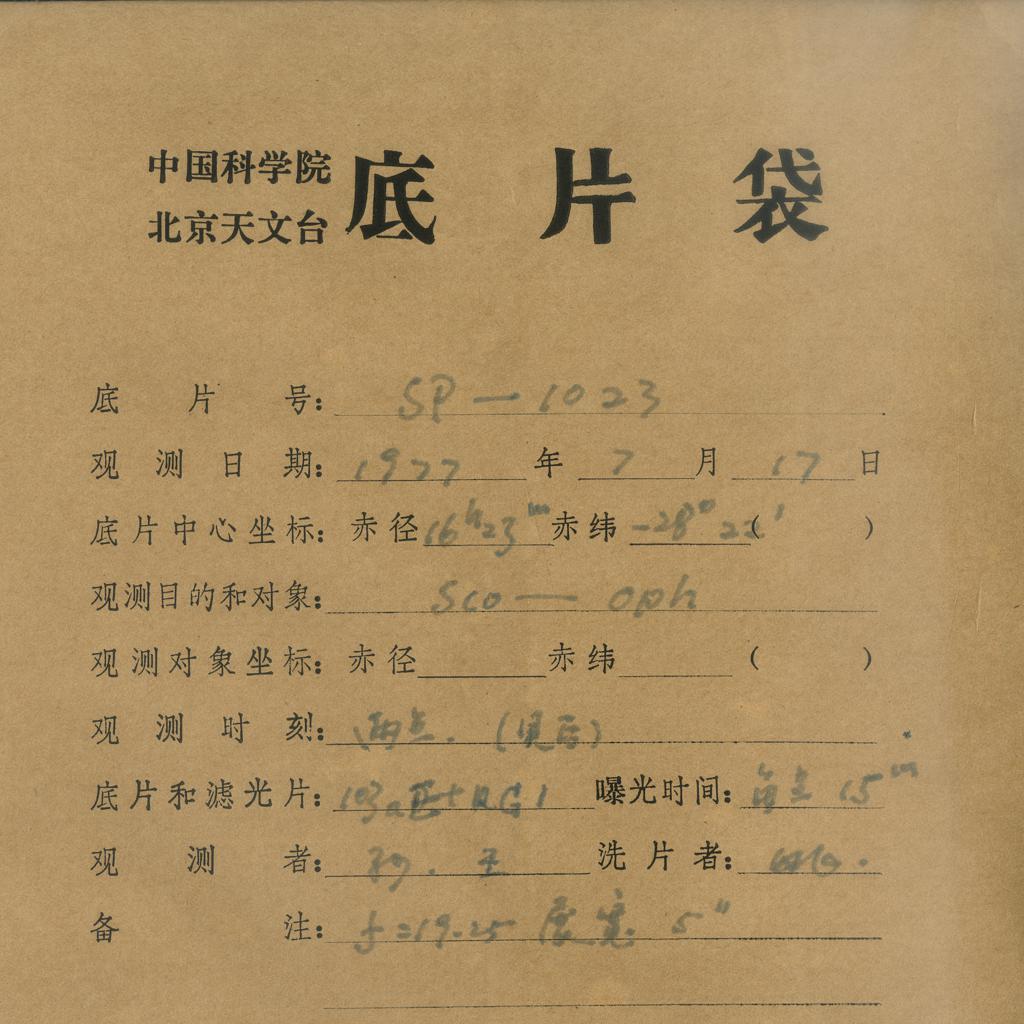 中国科学院
北京天文台
底片袋
底片号: SP—1023
观测日期: 1977年7月17日
底片中心坐标: 赤径16h23m赤纬-28°22′( )
观测目的和对象: Sco — Oph
观测对象坐标: 赤径 赤纬 ( )
观测时刻: 两点.
底片和滤光片: 103aE+RG1 曝光时间: 每点 15m
观测者: 孙. 王 洗片者:
备注: f=19.25 展宽 5"